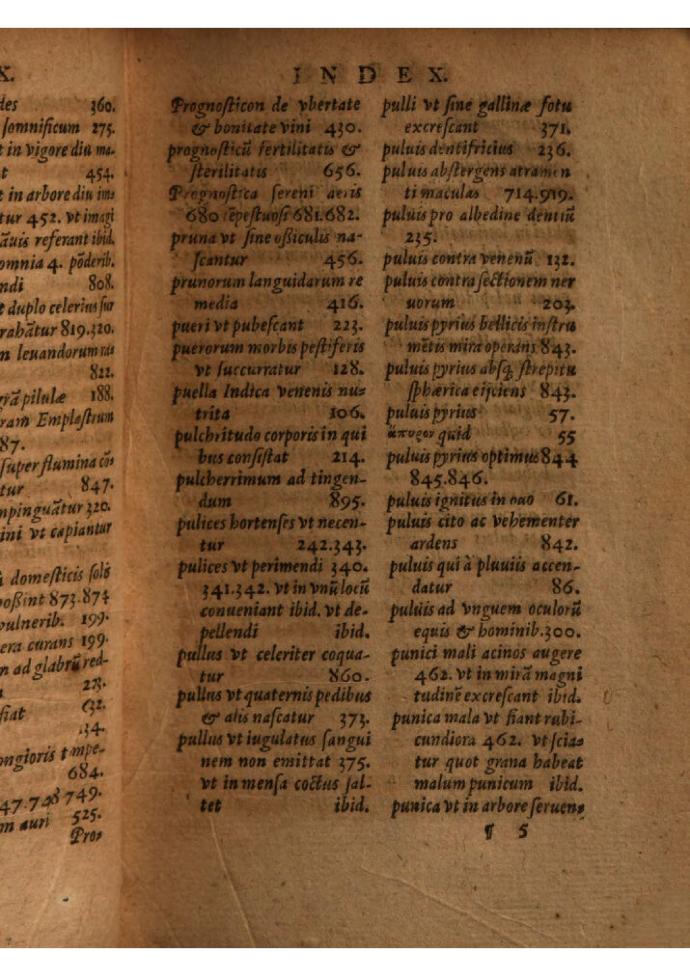 X.
des 360.
ſomnificum 275.
t in vigore diu ma-
t 454.
t in arbore diu im=
tur 452. vt imagi
āuis referant ibid.
omnia 4. pōderib.
ndi 808.
t duplo celerius fur
rabātur 819.320.
n leuandorum
822.
grā pilulæ 188.
ram Emplaſtrum
87.
ſuper flumina
tur 847.
npinguātur 320.
ini vt capiantur
domeſticis ſolis
poßint 873.874
vulnerib. 199.
era curans 199.
n ad glabrū red-
fiat
34.
ongioris
684.
47.748 749.
m auri 525.
Pros
INDEX.
Prognoſticon de vbertate
& bonitate vini 430.
prognoſticū fertilitatis &
ſterilitatis 656.
Prognoſtica ſereni aeris
680 tēpeſtuoſi 681.682.
pruna vt ſine oßiculis na-
ſcantur 456.
prunorum languidarum re
media 416.
pueri vt pubeſcant 223.
puerorum morbis peſtiferis
vt ſuccurratur 128.
puella Indica venenis nu=
trita 106.
pulchritudo corporis in qui
bus conſiſtat 214.
pulcherrimum ad tingen-
dum 895.
pulices hortenſes vt necen-
tur 242.343.
pulices vt perimendi 340.
341.342. vt in vnū locū
conueniant ibid. vt de-
pellendi ibid.
pullus vt celeriter coqua-
tur 860.
pullus vt quaternis pedibus
& alis naſcatur 373.
pullus vt iugulatus ſangui
nem non emittat 375.
vt in menſa coctus ſal-
tet ibid.
pulli vt ſine gallinæ fotu
excreſcant 371.
puluis dentifricius 236.
puluis abſtergens atramen
ti maculas 714.919.
puluis pro albedine dentiū
235.
puluis contra venenū 132.
puluis contra ſectionem ner
uorum 203.
puluis pyrius bellicis inſtru
mētis mira operans 843.
puluis pyrius abſq; ſtrepitu
ſphærica eijciens 843.
puluis pyrius 57.
ἄπυρον quid 55
puluis pyrius optimus 844
845.846.
puluis ignitus in ouo 61.
puluis cito ac vehementer
ardens 842.
puluis qui à pluuiis accen-
datur 86.
puluis ad vnguem oculorū
equis & hominib.300.
punici mali acinos augere
462. vt in mirā magni
tudinē excreſcant ibid.
punica mala vt fiant rubi-
cundiora 462. vt ſcias
tur quot grana habeat
malum punicum ibid.
punica vt in arbore ſeruens
¶ 5